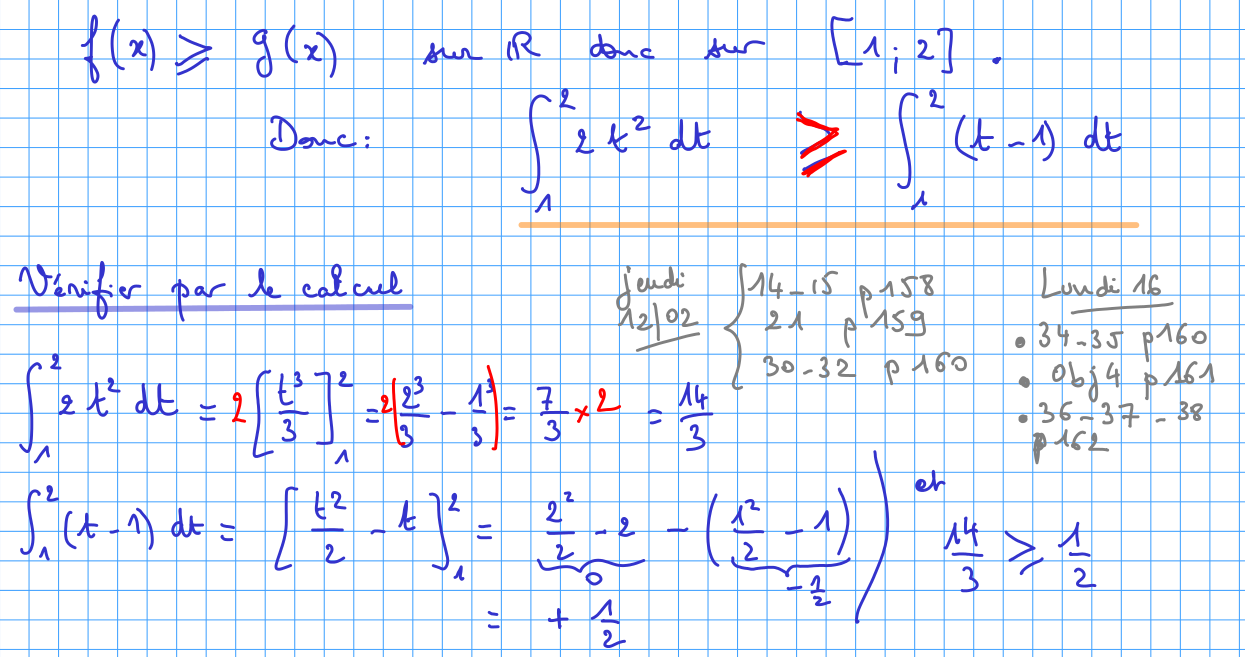 f(x) ⩾ g(x) sur ℝ donc sur [1 ; 2] .
Donc : ∫₁² 2 t² dt ⩾ ∫₁² (t - 1) dt
Vérifier par le calcul
jeudi
12/02
{ 14-15 p158
21 p159
30-32 p160
Lundi 16
• 34-35 p160
• Obj 4 p161
• 36-37-38
p162
∫₁² 2 t² dt = 2 [t³/3]₁² = 2(2³/3 - 1³/3) = 7/3 × 2 = 14/3
∫₁² (t - 1) dt = [t²/2 - t]₁² = 2²/2 - 2 - (1²/2 - 1)
0
-1/2
= + 1/2
et
14/3 ⩾ 1/2